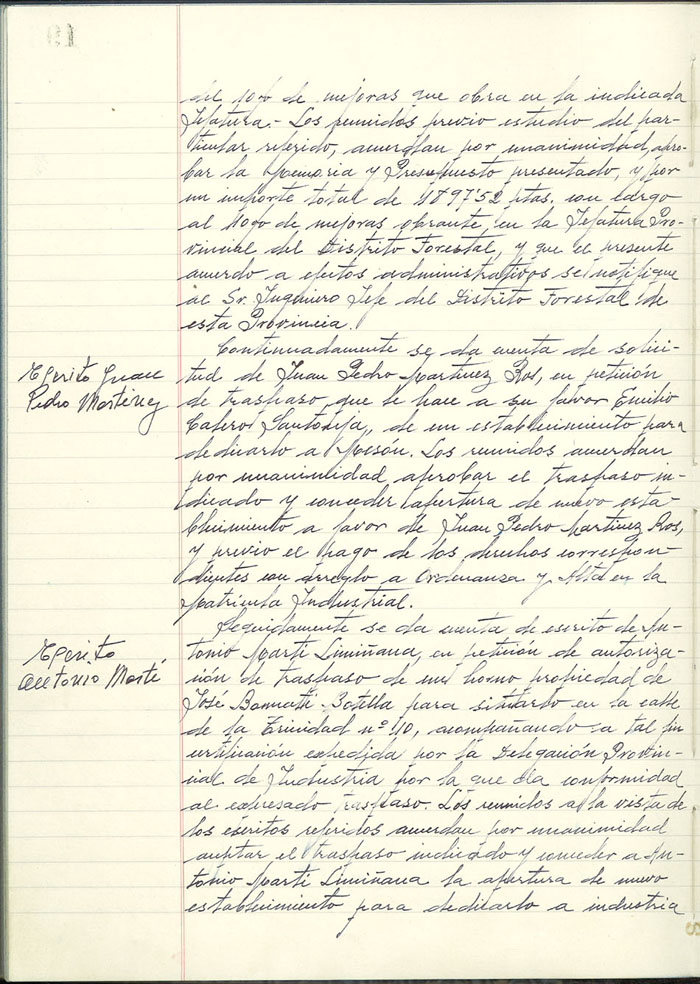 del 10% de mejoras que obra en la indicada
Jefatura.- Los reunidos previo estudio del par-
ticular referido, acuerdan por unanimidad, apro-
bar la Memoria y Presupuesto presentado, y por
un importe total de 489752 ptas. con cargo
al 10% de mejoras obrante, en la Jefatura Pro-
vincial del Distrito Forestal, y que el presente
acuerdo a efectos administrativos se notifique
al Sr. Ingeniero Jefe del Distrito Forestal de
esta Provincia.
Continuadamente se da cuenta de solici-
Escrito Juan
tud de Juan Pedro Martinez Ros, en petición
Pedro Martinez
de traspaso que le hace a su favor Emilio
Santonja, de un establecimiento para
dedicarlo a Mesón. Los reunidos acuerdan
por unanimidad aprobar el traspaso in-
dicado y conceder apertura de nuevo esta-
blecimiento a favor de Juan Pedro Martinez Ros,
y previo el pago de los derechos correspon-
dientes con arreglo a Ordenanza y Alta en la
Matrícula Industrial.
Seguidamente se da cuenta de escrito de An-
Escrito
tonio Marti Limiñana, en petición de autoriza-
Antonio Marti
ción de traspaso de un horno propiedad de
José para situarlo en la calle
de la Trinidad nº 10, acompañando a tal fin
certificación expedida por la Delegación Provin-
cial de Industria por la que da conformidad
al expresado traspaso. Los reunidos a la vista de
los escritos referidos acuerdan por unanimidad
aceptar el traspaso indicado y conceder a An-
tonio Marti Limiñana la apertura de nuevo
establecimiento para dedicarlo a industria